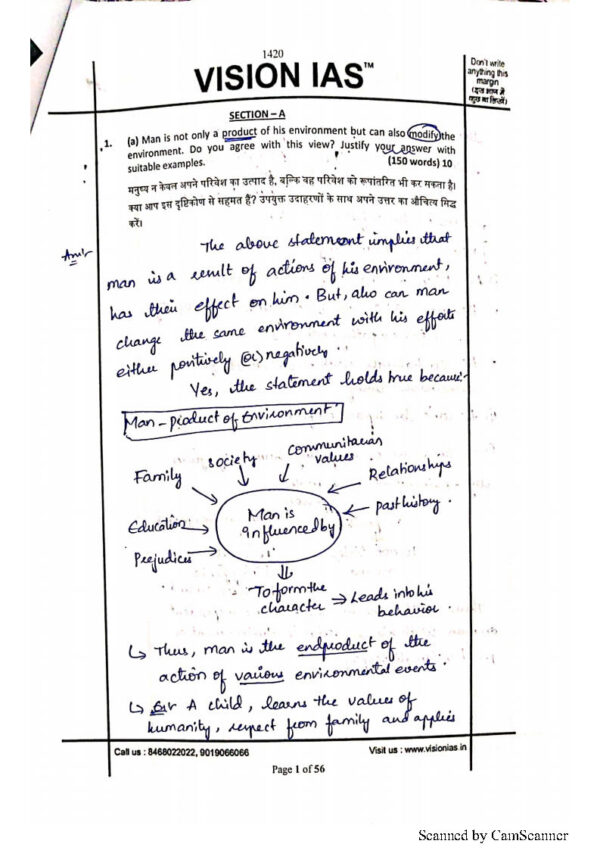 1420
VISION IAS™
Don't write
anything this
margin
(इस भाग में
कुछ ना लिखें)
SECTION – A
1. (a) Man is not only a product of his environment but can also modify the
environment. Do you agree with this view? Justify your answer with
suitable examples. (150 words) 10
मनुष्य न केवल अपने परिवेश का उत्पाद है, बल्कि वह परिवेश को रूपांतरित भी कर सकता है।
क्या आप इस दृष्टिकोण से सहमत हैं? उपयुक्त उदाहरणों के साथ अपने उत्तर का औचित्य सिद्ध
करें।
The above statement implies that
man is a result of actions of his environment,
has their effect on him. But, also can man
change the same environment with his efforts
either positively (or) negatively.
Yes, the statement holds true because:-
Man - product of Environment
Family
society
Communitarian
values
Relationships
past history.
Education
Prejudices
Man is
influenced by
To form the
character → Leads into his
behavior.
↳ Thus, man is the endproduct of the
action of various environmental events.
↳ A child, learns the values of
humanity, respect from family and applies
Call us : 8468022022, 9019066066
Visit us : www.visionias.in
Page 1 of 56
Scanned by CamScanner